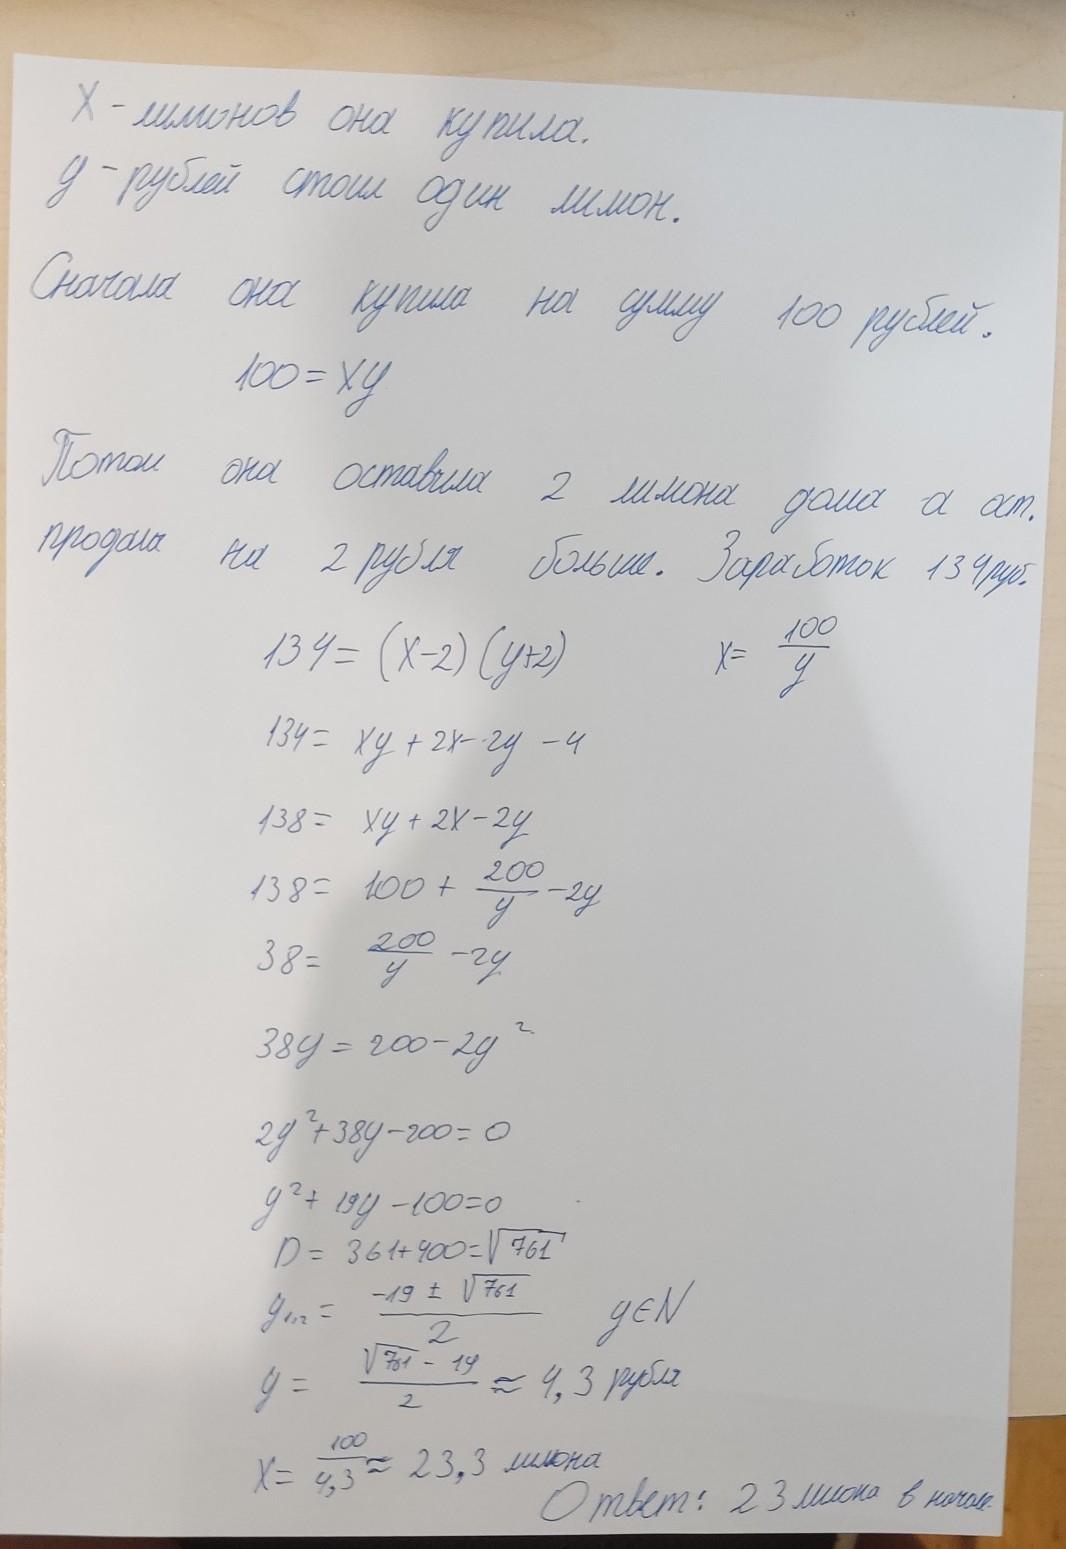 X - лимонов она купила.
y - рублей стоил один лимон.
Сначала она купила на сумму 100 рублей.
100 = xy
Потом она оставила 2 лимона дома а ост.
продала на 2 рубля больше. Заработок 134руб.
134 = (x-2)(y+2) x = 100/y
134 = xy + 2x - 2y - 4
138 = xy + 2x - 2y
138 = 100 + 200/y - 2y
38 = 200/y - 2y
38y = 200 - 2y²
2y² + 38y - 200 = 0
y² + 19y - 100 = 0
D = 361 + 400 = √761
y₁,₂ = (-19 ± √761)/2 y∈N
y = (√761 - 19)/2 ≈ 4,3 рубля
x = 100/4,3 ≈ 23,3 лимона
Ответ: 23 лимона в начале